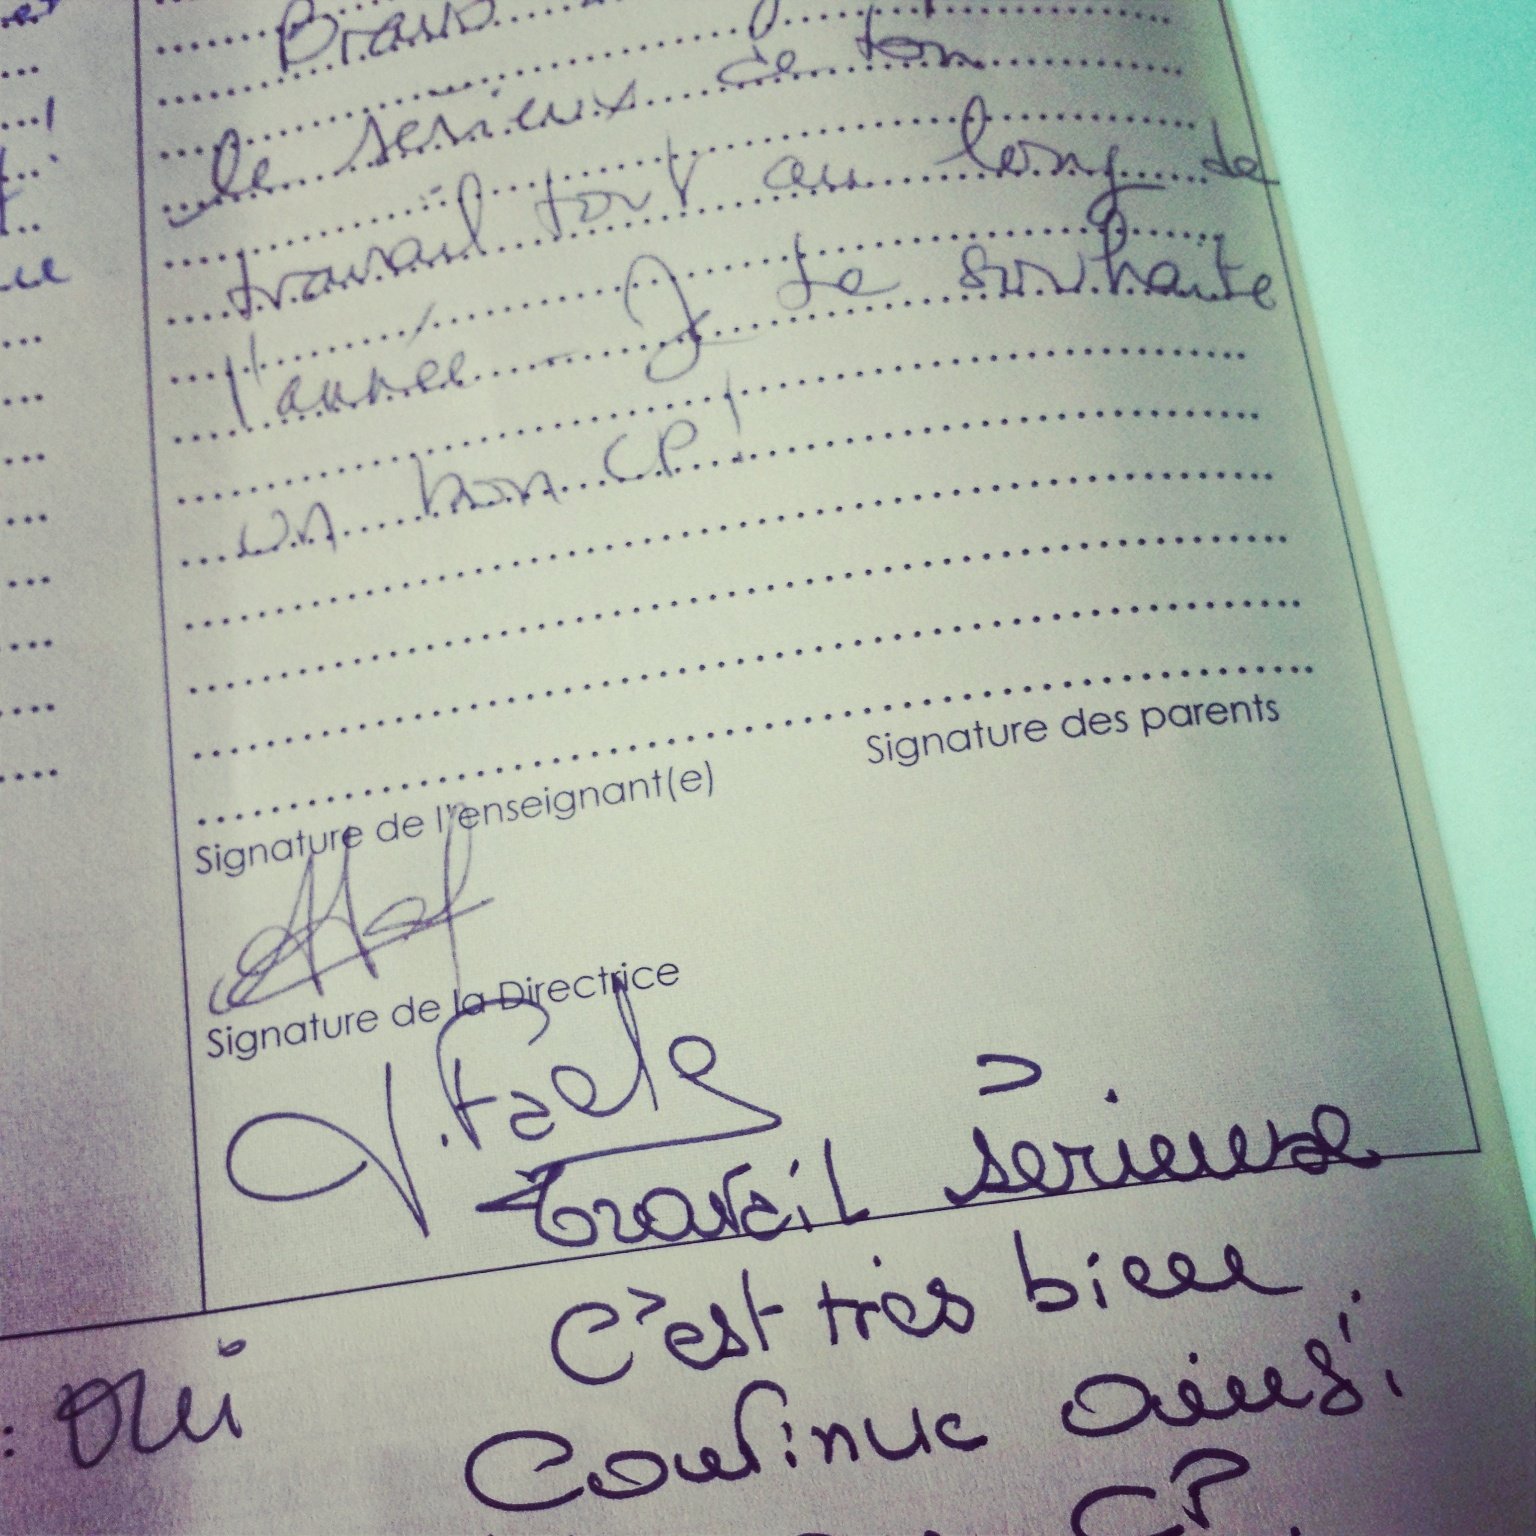 Bravo
le sérieux de ton
travail tout au long de
l'année - Je te souhaite
un bon CP !
Signature de l'enseignant(e)
Signature des parents
Signature de la Directrice
travail sérieuse
C'est très bien
Continue ainsi.
: oui
CP